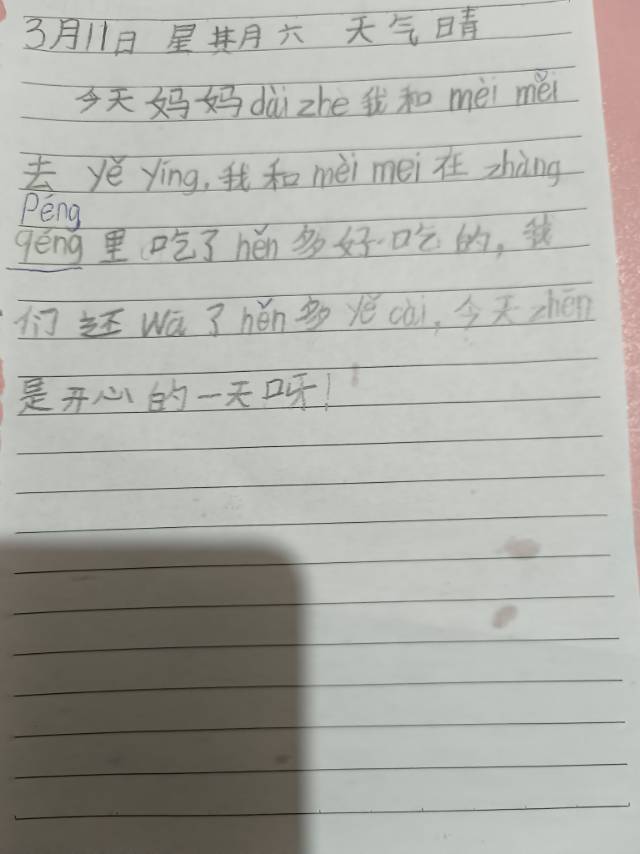 3月11日 星期六 天气晴
今天妈妈dài zhe我和mèi měi
去 yě yíng,我和mèi mei在zhàng
Péng
qéng里吃了hěn多好吃的,我
们还wā了hěn多yě cài,今天zhēn
是开心的一天呀!